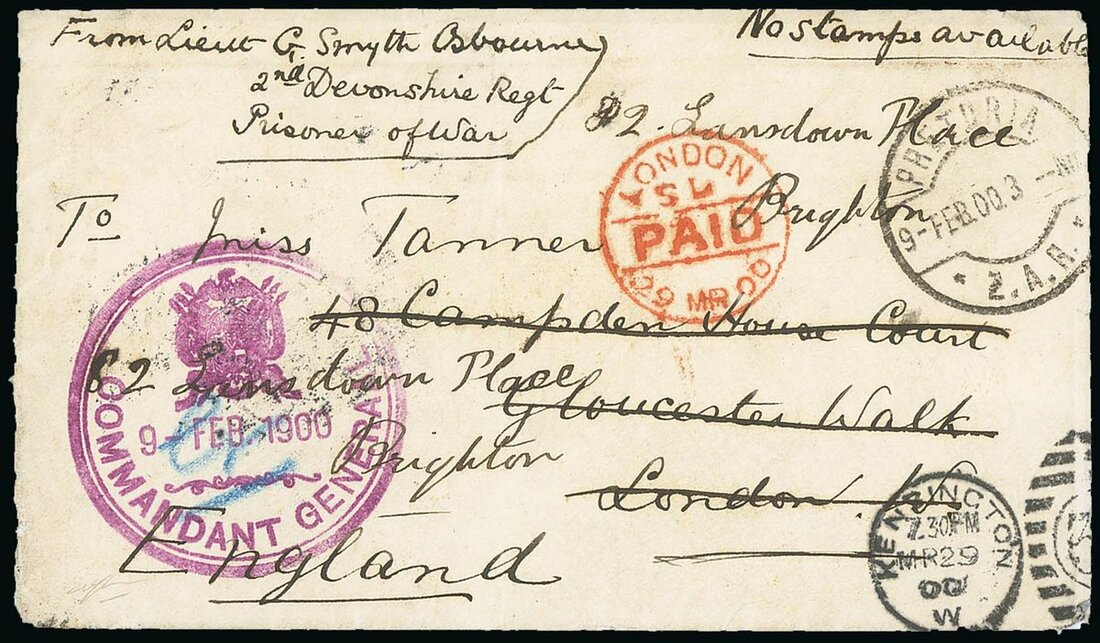 From Lieut G. Smyth Osbourne
2nd Devonshire Regt
Prisoner of War
No stamps available
82 Lansdown Place
Brighton
PRETORIA
9-FEB.00.3
Z.A.R.
LONDON
S L
PAID
29 MR 00
To Miss Tanner
48 Campden House Court
Gloucester Walk
London W.
82 Lansdown Place
Brighton
England
COMMANDANT GENERAAL
9-FEB 1900
KENSINGTON
7.30PM
MR 29
00
W